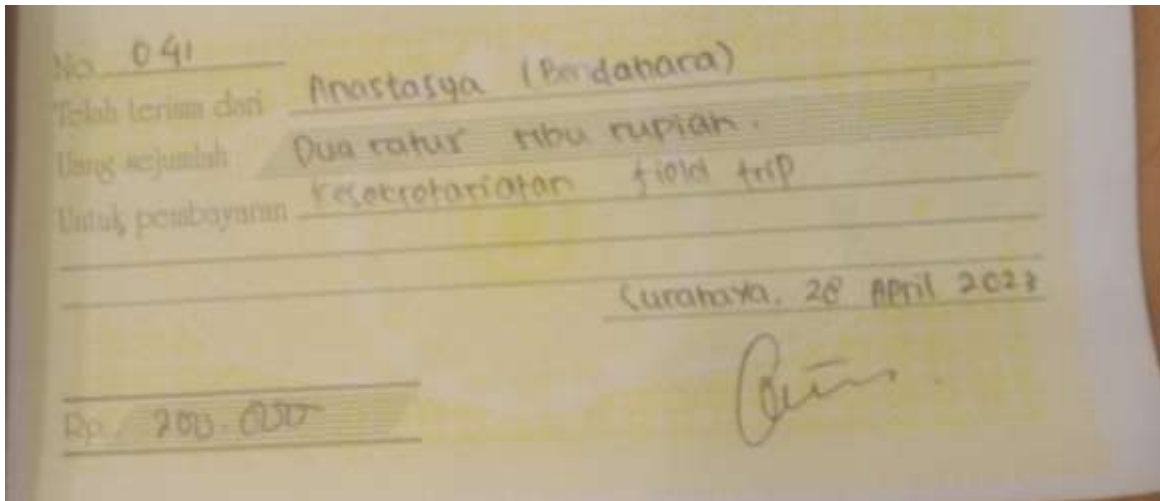 No. 041
Telah terima dari Anastasya (Bendahara)
Uang sejumlah Dua ratus ribu rupiah.
Untuk pembayaran Kesekretariatan field trip
Surabaya, 28 April 2023
Rp. 200.000